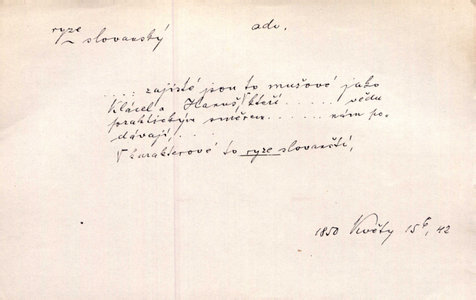 ryze slovanský adv.
.... zajisté jsou to mužové jako
Klácel a Hanuš, kteří ..... vědu
praktickým směrem ..... nám po-
dávají, ..
Charakterové to ryze slovanští,
1850 Květy 15, 42